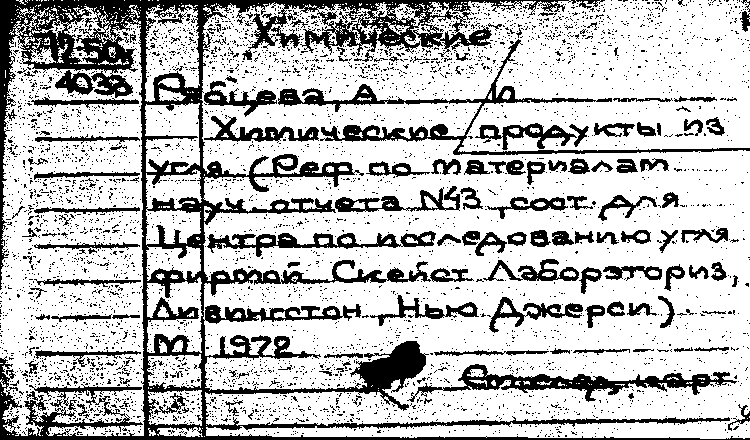 Химические
12.50к
403в
Рябцева, А И
Химические продукты из
угля. (Реф по материалам
науч. отчета №43, сост. для
Центра по исследованию угля
фирмой Скейст Лаборэториз,
Ливингстон, Нью Джерси).
М 1972.
карт